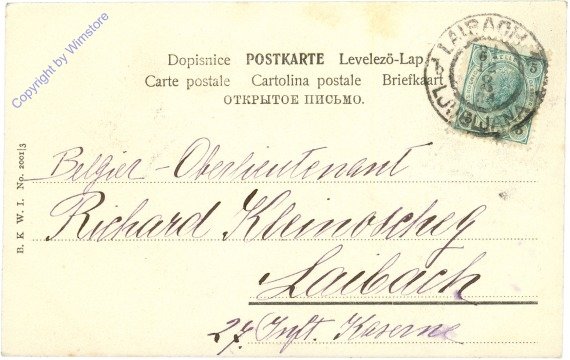 Copyright by Wimstore
Dopisnice POSTKARTE Levelező-Lap
Carte postale Cartolina postale Briefkaart
ОТКРЫТОЕ ПИСЬМО.
LAIBACH
LJUBLJANA
B. K. W. I. No. 2001|3
Belgier-Oberlieutenant
Richard Kleinoscheg
Laibach
27 Inft. Kaserne